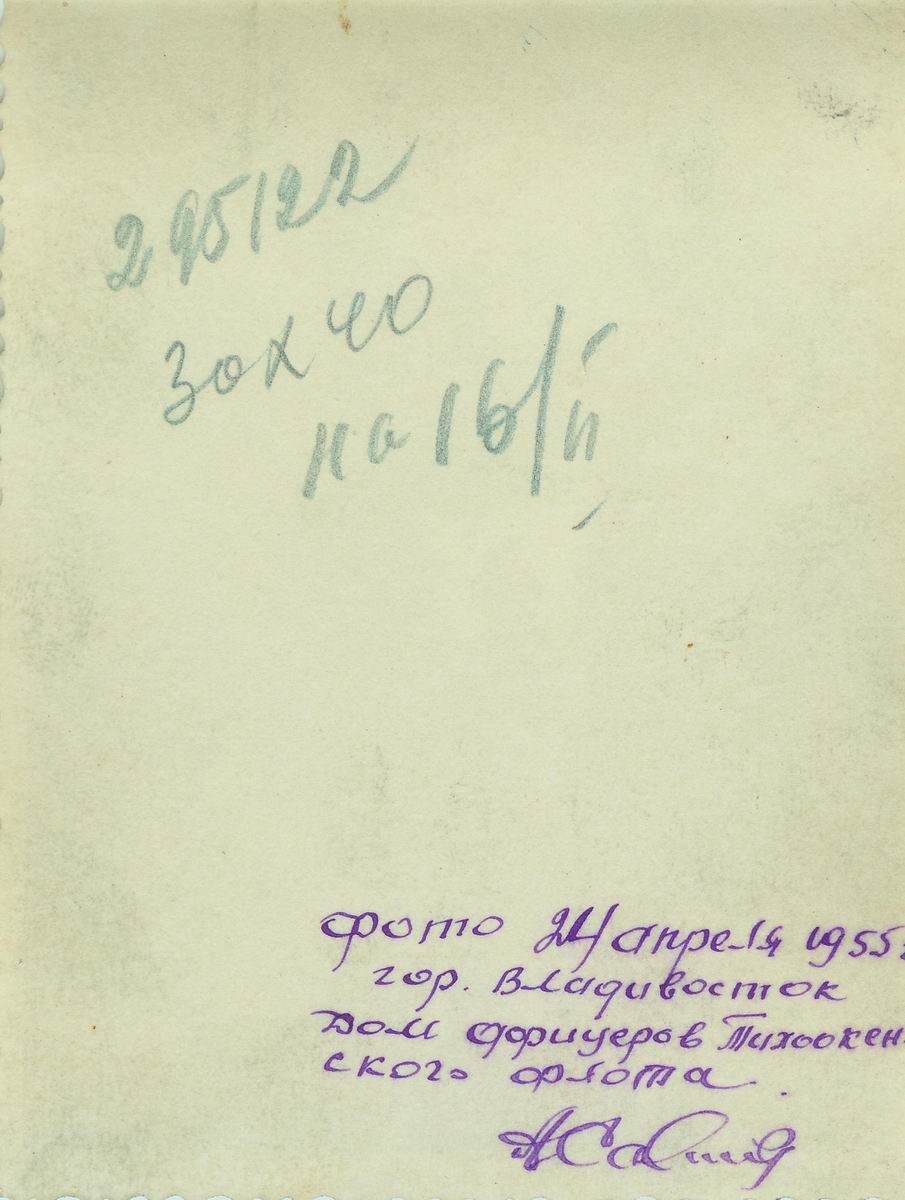 295122
30х40
на 16/II
Фото 24 апреля 1955г
гор. Владивосток
Дом офицеров Тихоокеан-
ского флота.